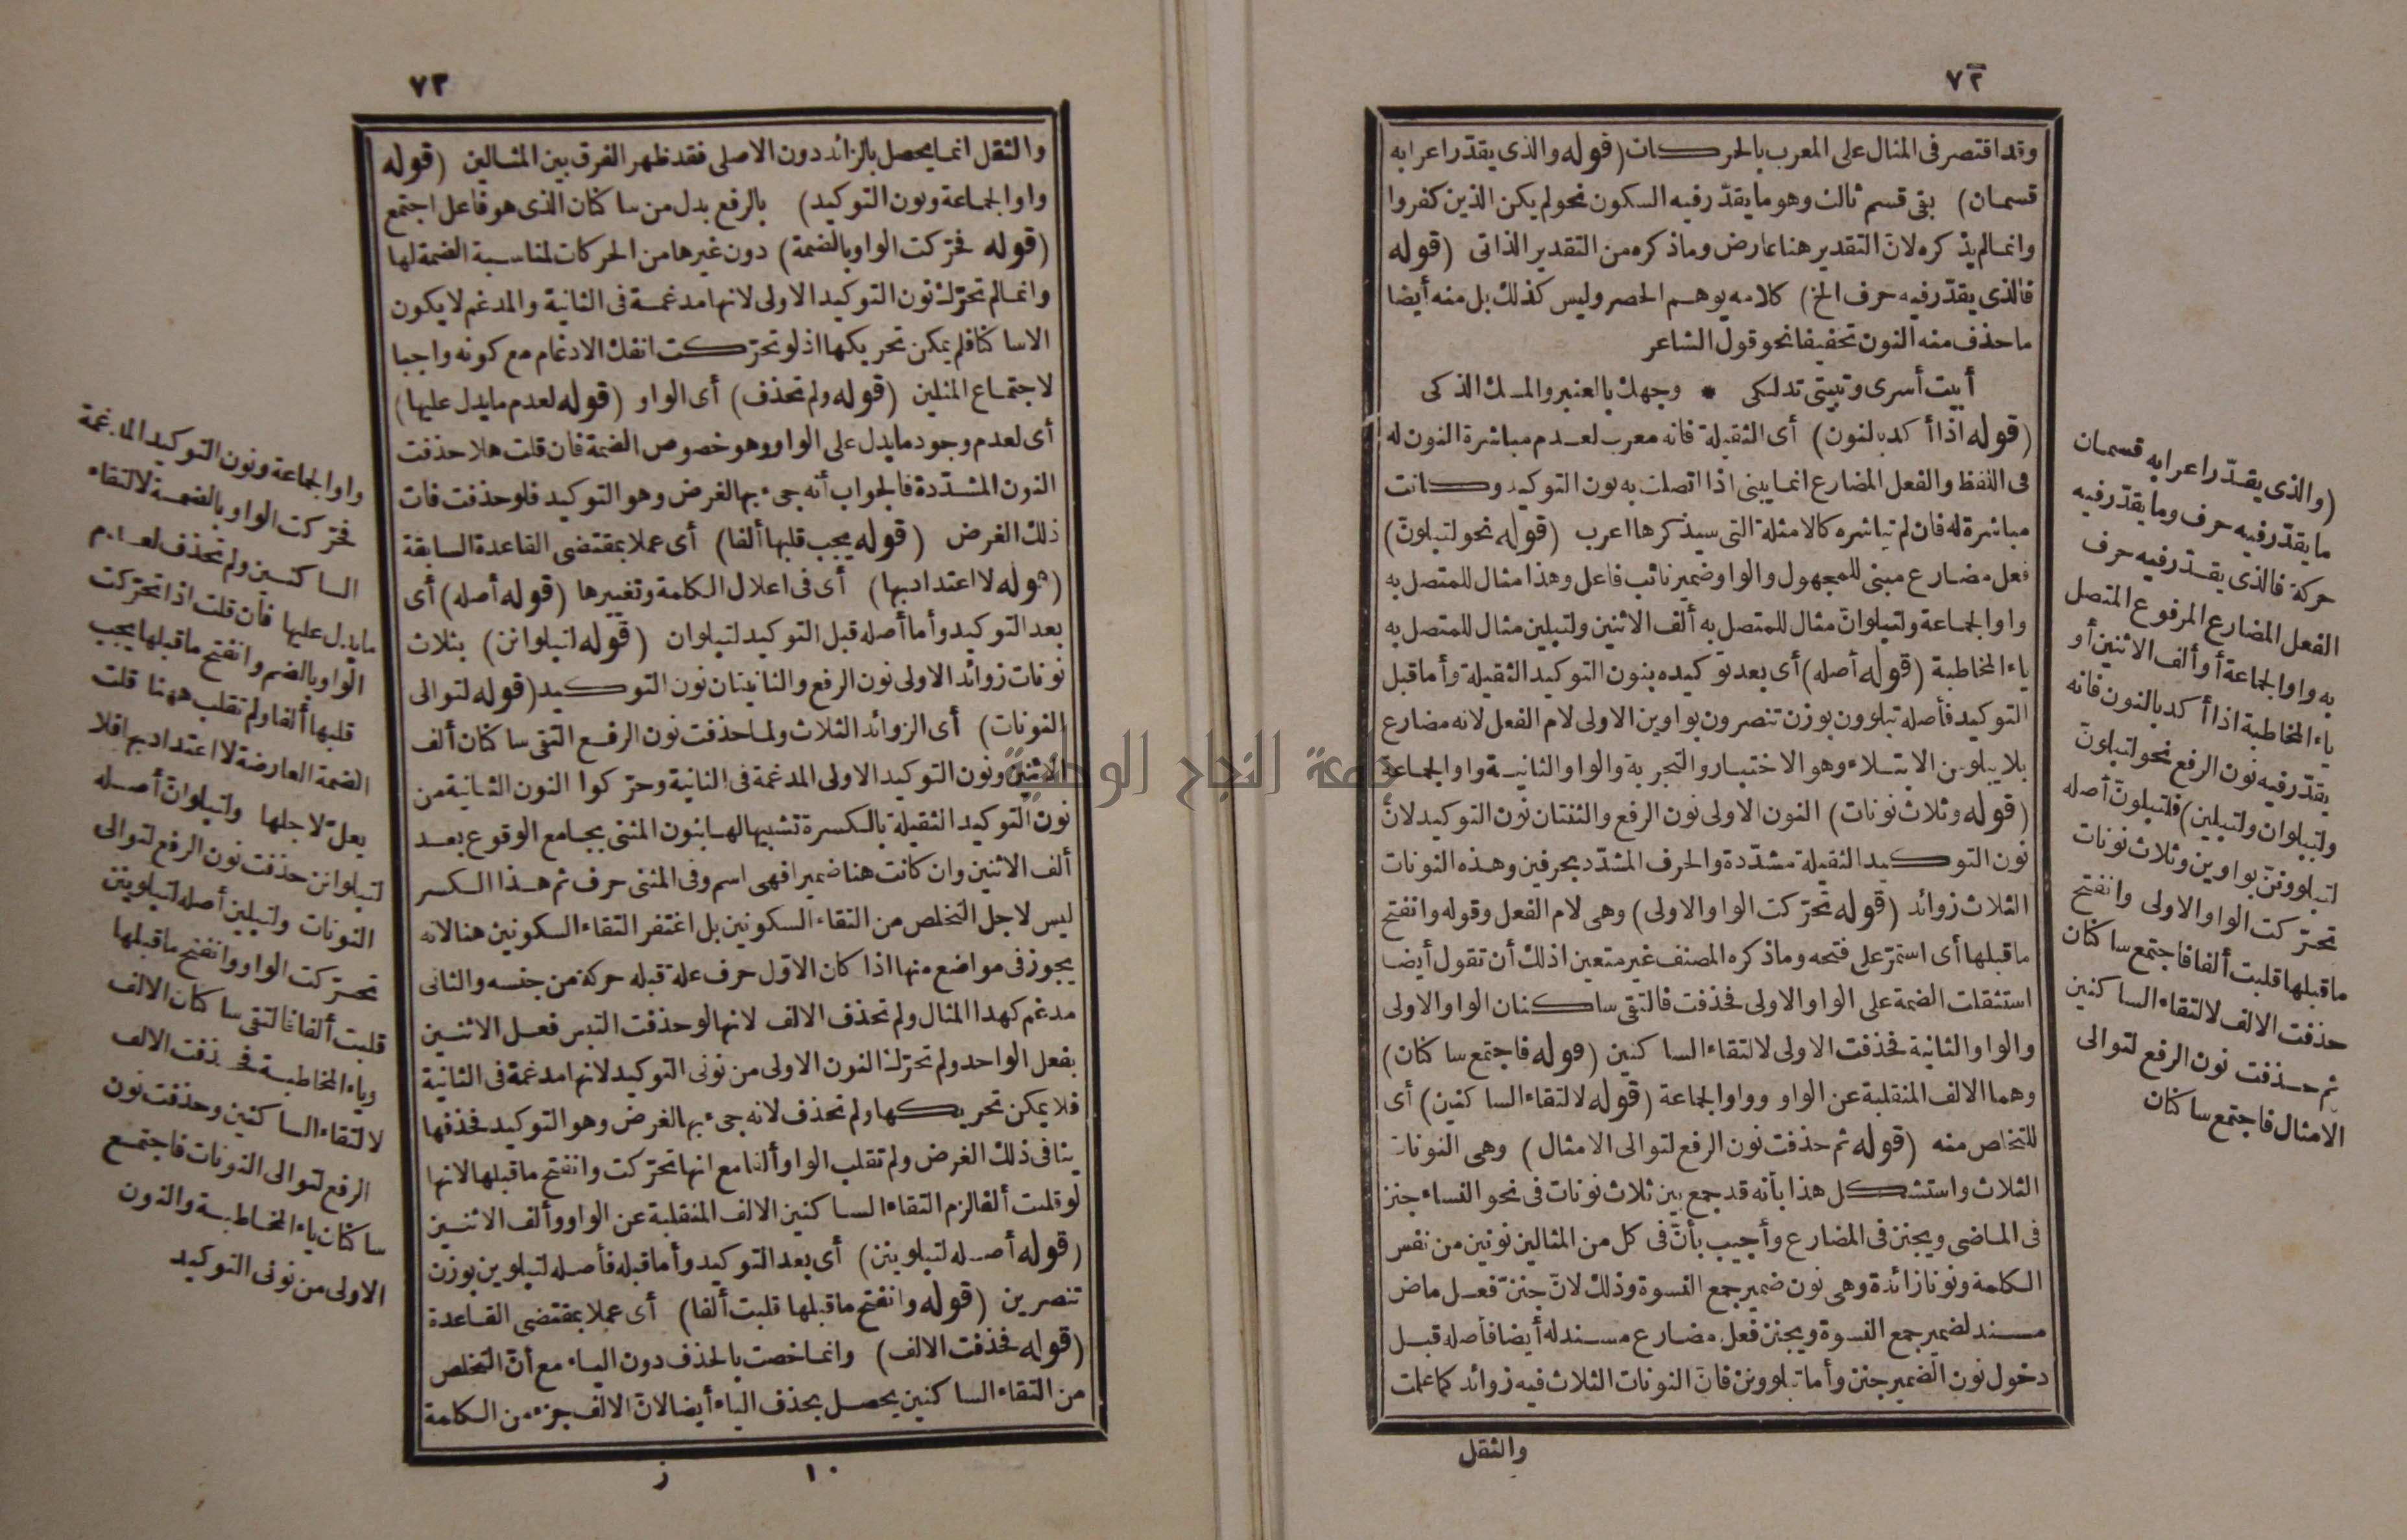 ٧٢
وقد اقتصر فى المثال على المعرب بالحركات (قوله والذى يقدّر اعرابه
قسمان) بقى قسم ثالث وهو ما يقدّر فيه السكون نحو لم يكن الذين كفروا
وانما لم يذكره لان التقدير هنا عارض وما ذكره من التقدير الذاتى (قوله
فالذى يقدّر فيه حرف الخ) كلامه يوهم الحصر وليس كذلك بل منه أيضا
ما حذف منه النون تخفيفا نحو قول الشاعر
أبيت أسرى وتبيتى تدلكى * وجهك بالعنبر والمسك الذكى
(قوله اذا أكد بالنون) أى الثقيلة فانه معرب لعدم مباشرة النون له
فى اللفظ والفعل المضارع انما يبنى اذا اتصلت به نون التوكيد وكانت
مباشرة له فان لم تباشره كالامثلة التى سيذكرها اعرب (قوله نحو لتبلونّ)
فعل مضارع مبنى للمجهول والواو ضمير نائب فاعل وهذا مثال للمتصل به
واو الجماعة ولتبلوانّ مثال للمتصل به ألف الاثنين ولتبلين مثال للمتصل به
ياء المخاطبة (قوله أصله) أى بعد توكيده بنون التوكيد الثقيلة وأما قبل
التوكيد فأصله تبلوون بوزن تنصرون بواوين الاولى لام الفعل لانه مضارع
بلا يبلو من الابتلاء وهو الاختبار والتجربة والواو الثانية واو الجماعة
(قوله وثلاث نونات) النون الاولى نون الرفع والثنتان نون التوكيد لانّ
نون التوكيد الثقيلة مشدّدة والحرف المشدّد بحرفين وهذه النونات
الثلاث زوائد (قوله تحرّكت الواو الاولى) وهى لام الفعل وقوله وانفتح
ما قبلها أى استمرّ على فتحه وما ذكره المصنف غير متعين اذلك أن تقول أيضا
استثقلت الضمة على الواو الاولى فحذفت فالتقى ساكنان الواو الاولى
والواو الثانية فحذفت الاولى لالتقاء الساكنين (قوله فاجتمع ساكنان)
وهما الالف المنقلبة عن الواو وواو الجماعة (قوله لالتقاء الساكنين) أى
للتخلص منه (قوله ثم حذفت نون الرفع لتوالى الامثال) وهى النونات
الثلاث واستشكل هذا بأنه قد جمع بين ثلاث نونات فى نحو النساء جننّ
فى الماضى ويجننّ فى المضارع وأجيب بأنّ فى كل من المثالين نونين من نفس
الكلمة ونونا زائدة وهى نون ضمير جمع النسوة وذلك لانّ جننّ فعل ماض
مسند لضمير جمع النسوة ويجننّ فعل مضارع مسند له أيضا فأصله قبل
دخول نون الضمير جنن وأما تبلوونن فانّ النونات الثلاث فيه زوائد كما علمت
والثقل
(والذى يقدّر اعرابه قسمان
ما يقدّر فيه حرف وما يقدّر فيه
حركة فالذى يقدّر فيه حرف
الفعل المضارع المرفوع المتصل
به واو الجماعة أو ألف الاثنين أو
ياء المخاطبة اذا أكد بالنون فانه
يقدّر فيه نون الرفع نحو لتبلونّ
ولتبلوان ولتبلين) فلتبلونّ أصله
لتبلووننّ بواوين وثلاث نونات
تحرّكت الواو الاولى وانفتح
ما قبلها قلبت ألفا فاجتمع ساكنان
حذفت الالف لالتقاء الساكنين
ثم حذفت نون الرفع لتوالى
الامثال فاجتمع ساكنان
٧٣
والثقل انما يحصل بالزائد دون الاصلى فقد ظهر الفرق بين المثالين (قوله
واو الجماعة ونون التوكيد) بالرفع بدل من ساكنان الذى هو فاعل اجتمع
(قوله فحرّكت الواو بالضمة) دون غيرها من الحركات لمناسبة الضمة لها
وانما لم تحرّك نون التوكيد الاولى لانها مدغمة فى الثانية والمدغم لا يكون
الا ساكنا فلم يمكن تحريكها اذ لو تحرّكت انفك الادغام مع كونه واجبا
لاجتماع المثلين (قوله ولم تحذف) أى الواو (قوله لعدم ما يدل عليها)
أى لعدم وجود ما يدل على الواو وهو خصوص الضمة فان قلت هلا حذفت
النون المشدّدة فالجواب أنه جىء بها لغرض وهو التوكيد فلو حذفت فات
ذلك الغرض (قوله يجب قلبها ألفا) أى عملا بمقتضى القاعدة السابقة
(قوله لا اعتداد بها) أى فى اعلال الكلمة وتغييرها (قوله أصله) أى
بعد التوكيد وأما أصله قبل التوكيد لتبلوان (قوله لتبلوانن) بثلاث
نونات زوائد الاولى نون الرفع والثانيتان نون التوكيد (قوله لتوالى
النونات) أى الزوائد الثلاث ولما حذفت نون الرفع التقى ساكنان ألف
الاثنين ونون التوكيد الاولى المدغمة فى الثانية وحرّكوا النون الثانية من
نون التوكيد الثقيلة بالكسرة تشبيها لها بنون المثنى بجامع الوقوع بعد
ألف الاثنين وان كانت هنا ضميرا فهى اسم وفى المثنى حرف ثم هذا الكسر
ليس لاجل التخلص من التقاء السكونين بل اغتفر التقاء السكونين هنا لانه
يجوز فى مواضع منها اذا كان الاوّل حرف علة قبله حركة من جنسه والثانى
مدغم كهذا المثال ولم تحذف الالف لانها لو حذفت التبس فعل الاثنين
بفعل الواحد ولم تحرّك النون الاولى من نونى التوكيد لانها مدغمة فى الثانية
فلا يمكن تحريكها ولم تحذف لانه جىء بها لغرض وهو التوكيد فحذفها
ينافى ذلك الغرض ولم تقلب الواو ألفا مع انها تحرّكت وانفتح ما قبلها لانها
لو قلبت ألفا لزم التقاء الساكنين الالف المنقلبة عن الواو وألف الاثنين
(قوله أصله لتبلوينن) أى بعد التوكيد وأما قبله فأصله لتبلوين بوزن
تنصرين (قوله وانفتح ما قبلها قلبت ألفا) أى عملا بمقتضى القاعدة
(قوله فحذفت الالف) وانما خصت بالحذف دون الياء مع أنّ التخلص
من التقاء الساكنين يحصل بحذف الياء أيضا لانّ الالف جزء من الكلمة
١٠ ز
واو الجماعة ونون التوكيد المدغمة
فحرّكت الواو بالضمة لالتقاء
الساكنين ولم تحذف لعدم
ما يدل عليها فان قلت اذا تحرّكت
الواو بالضم وانفتح ما قبلها يجب
قلبها ألفا ولم تقلب ههنا قلت
الضمة العارضة لا اعتداد بها فلا
يعلّ لاجلها ولتبلوانّ أصله
لتبلوانن حذفت نون الرفع لتوالى
النونات ولتبلين أصله لتبلوينن
تحرّكت الواو وانفتح ما قبلها
قلبت ألفا فالتقى ساكنان الالف
وياء المخاطبة فحذفت الالف
لالتقاء الساكنين وحذفت نون
الرفع لتوالى النونات فاجتمع
ساكنان ياء المخاطبة والنون
الاولى من نونى التوكيد
جامعة النجاح الوطنية